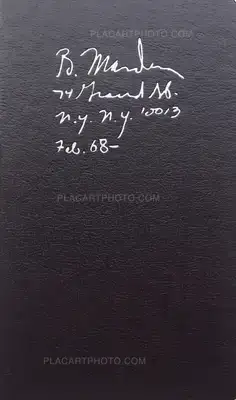 PLACARTPHOTO.COM
B. Marden
74 Grand St.
N.Y. N.Y. 10013
Feb. 68-
PLACARTPHOTO.COM
PLACARTPHOTO.COM